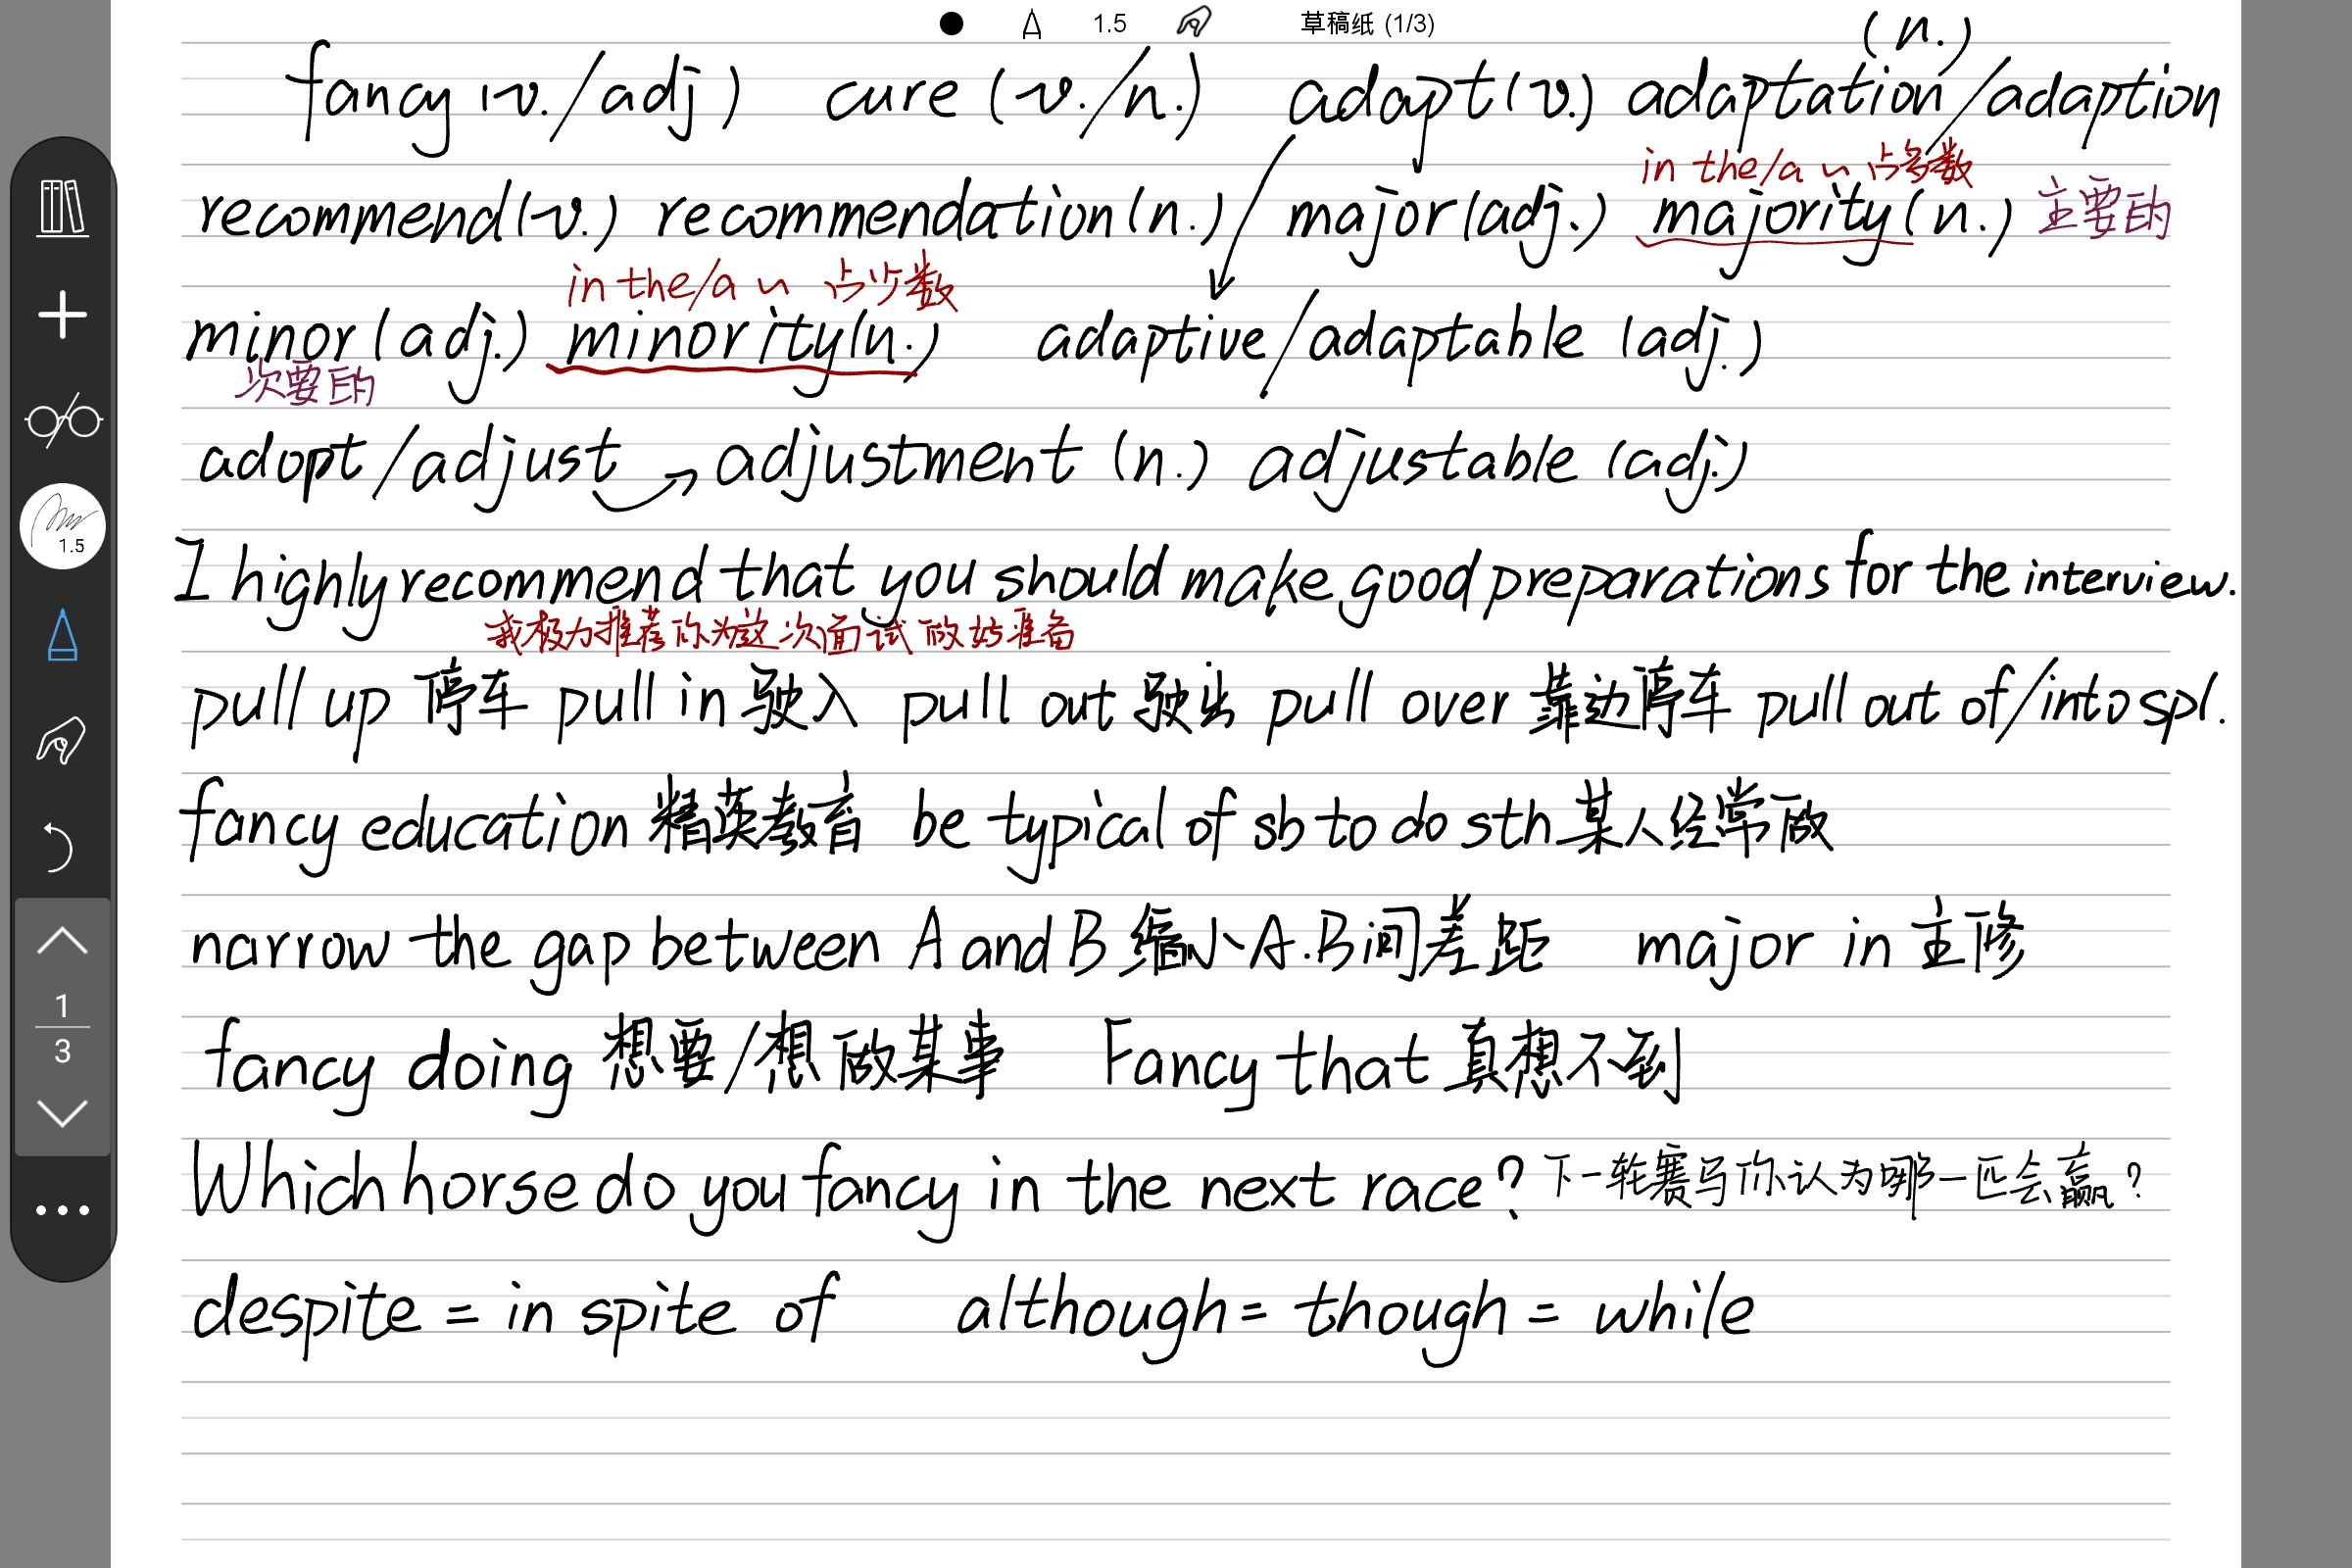 1.5 草稿纸 (1/3)
(n.)
fancy (v./adj) cure (v./n.) adapt(v.) adaptation/adaption
in the/a ~ 占多数
recommend(v.) recommendation(n.) major(adj.) majority(n.) 主要的
in the/a ~ 占少数
minor(adj.) minority(n.) adaptive/adaptable (adj.)
次要的
adopt/adjust → adjustment (n.) adjustable (adj.)
1.5
I highly recommend that you should make good preparations for the interview.
我极力推荐你为这次面试做好准备
pull up 停车 pull in 驶入 pull out 驶出 pull over 靠边停车 pull out of/into spl.
fancy education 精英教育 be typical of sb to do sth 某人经常做
narrow the gap between A and B 缩小A.B间差距 major in 主修
1
3
fancy doing 想要/想做某事 Fancy that 真想不到
Which horse do you fancy in the next race? 下一轮赛马你认为哪一匹会赢?
despite = in spite of although = though = while